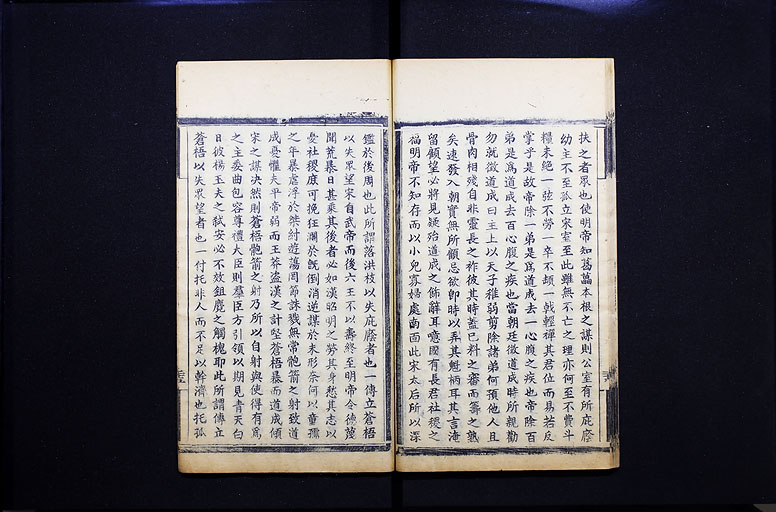 扶之者眾也使明帝知葛藟本根之謀則公室有所庇廕
幼主不至孤立宋室至此雖無不亡之理亦何至不費斗
糧未絕一弦不勞一卒不頓一戟輕禪其君位而易若反
掌乎是故帝除一弟是為道成去一心腹之疾也帝除百
弟是為道成去百心腹之疾也當朝廷徵道成時所親勸
勿就徵道成曰主上以天子稚弱剪除諸弟何預他人且
骨肉相殘自非靈長之祚彼其時蓋已料之審而籌之熟
矣速發入朝實無所顧忌欲即時以弄其魁柄耳其言淹
留顧望必將見疑殆道成之飾辭耳噫國有長君社稷之
福明帝不知存而以小兒寡婦處南面此宋太后所以深
鑑於後周也此所謂落洪枝以失庇廕者也一傳立蒼梧
以失眾望宋自武帝而後六王不以壽終至明帝令德蔑
聞荒暴日甚乘其後者必如漢昭明之勞其身愁其志以
憂社稷庶可挽狂瀾於旣倒消逆謀於未形奈何以童孺
之年暴虐浮於桀紂遊蕩罔節誅戮無常骲箭之射致道
成憂懼夫平帝弱而王莽盜漢之計堅蒼梧暴而道成傾
宋之謀決然則蒼梧骲箭之射乃所以自射與使得有為
之主委曲包容尊禮大臣則羣臣方引領以期見青天白
日彼楊玉夫之弒安必不效鉏麑之觸槐耶此所謂傳立
蒼梧以失眾望者也一付托非人而不足以幹濟也托孤